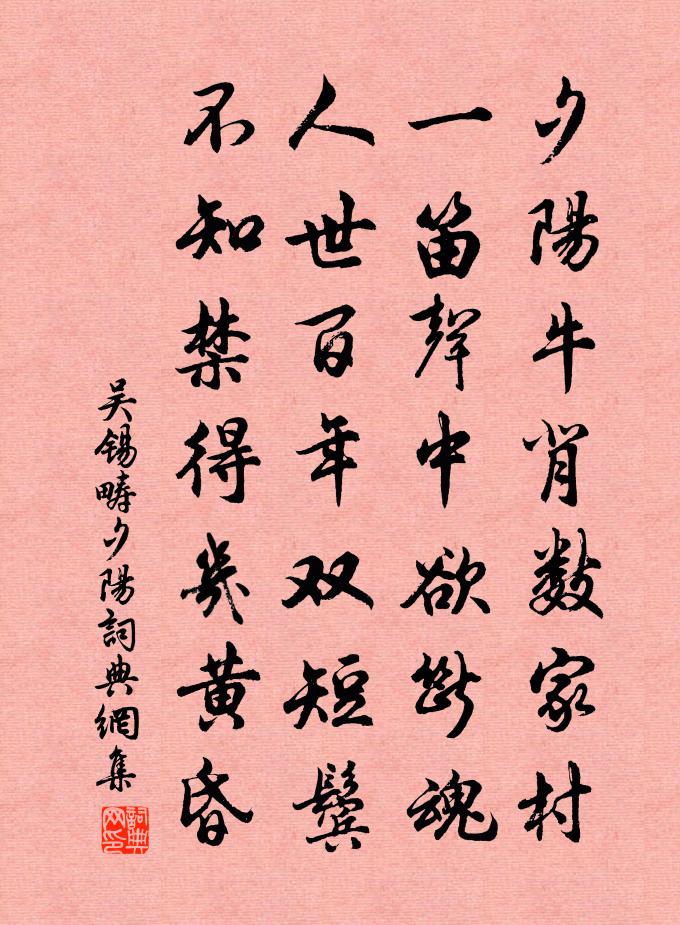 夕陽牛背数家村
一笛聲中欲斷魂
人世百年双短鬢
不知禁得幾黄昏
吴锡疇夕陽詞典網集
詞典网印